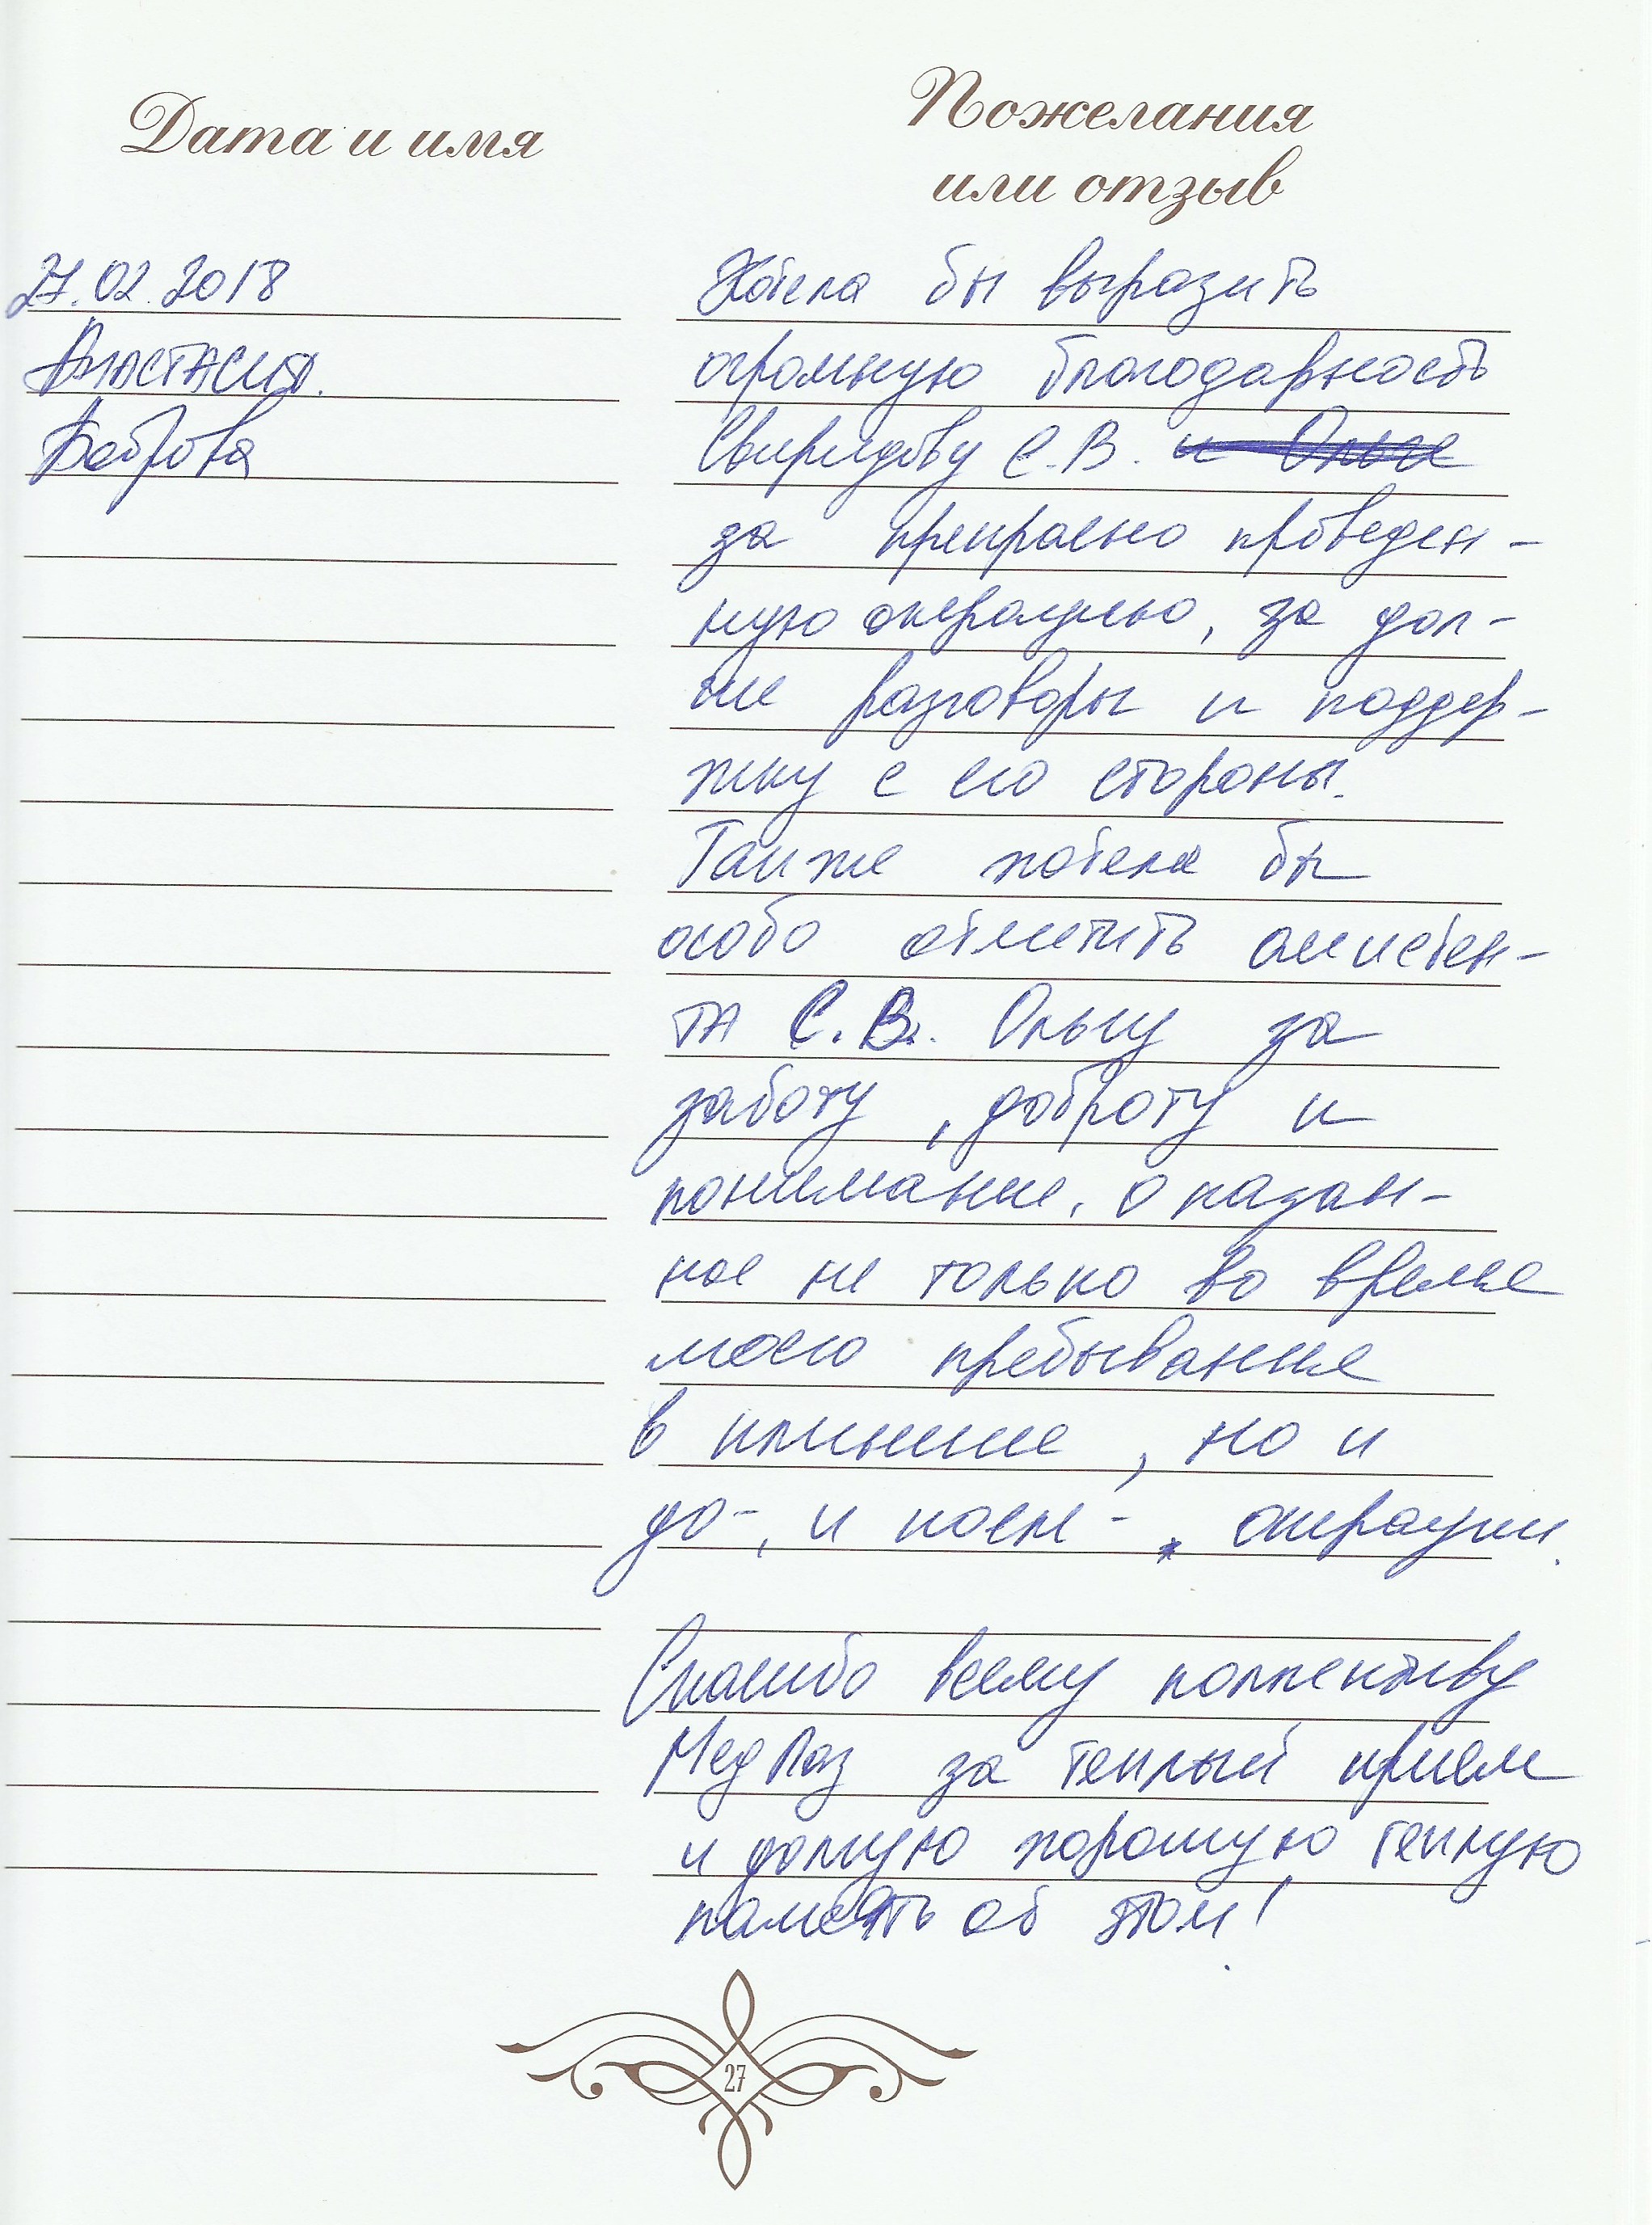 Дата и имя
Пожелания
или отзыв
27.02.2018
Анастасия.
Боброва
Хотела бы выразить
огромную благодарность
Свиридову С.В. и Ольге
за прекрасно проведен-
ную операцию, за дол-
гие разговоры и поддер-
жку с его стороны.
Также хотела бы
особо отметить ассистен-
та С.В. Ольгу за
заботу, доброту и
понимание, оказан-
ное не только во время
моего пребывания
в клинике, но и
до-, и посл- операции.
Спасибо всему коллективу
МедЛаз за теплый прием
и долгую хорошую теплую
память об этом!
27